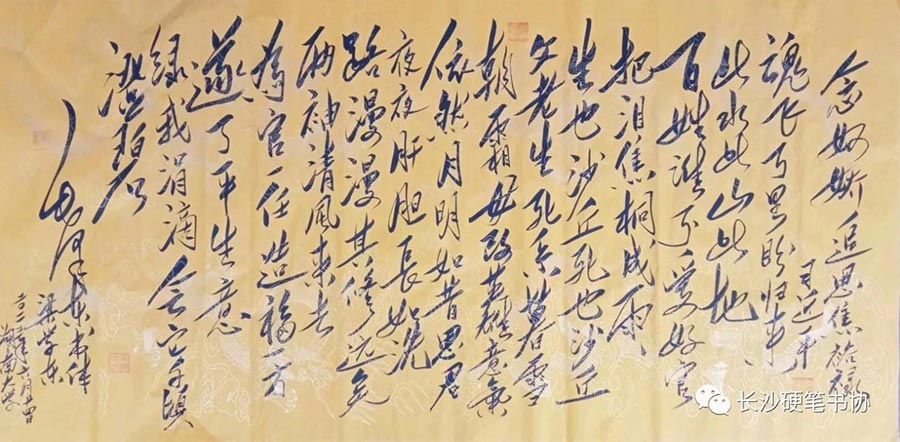 念奴娇 追思焦裕禄
习近平
魂飞万里盼归来
此水此山此地
百姓谁不爱好官
把泪焦桐成雨
生也沙丘死也沙丘
父老生死系暮雪
朝霜毋改英雄意气
依然月明如昔思君
夜夜肝胆长如洗
路漫漫其修远矣
两袖清风来去
为官一任造福一方
遂了平生意
绿我涓滴会它千顷
澄碧
毛泽东书体
长沙硬笔书协